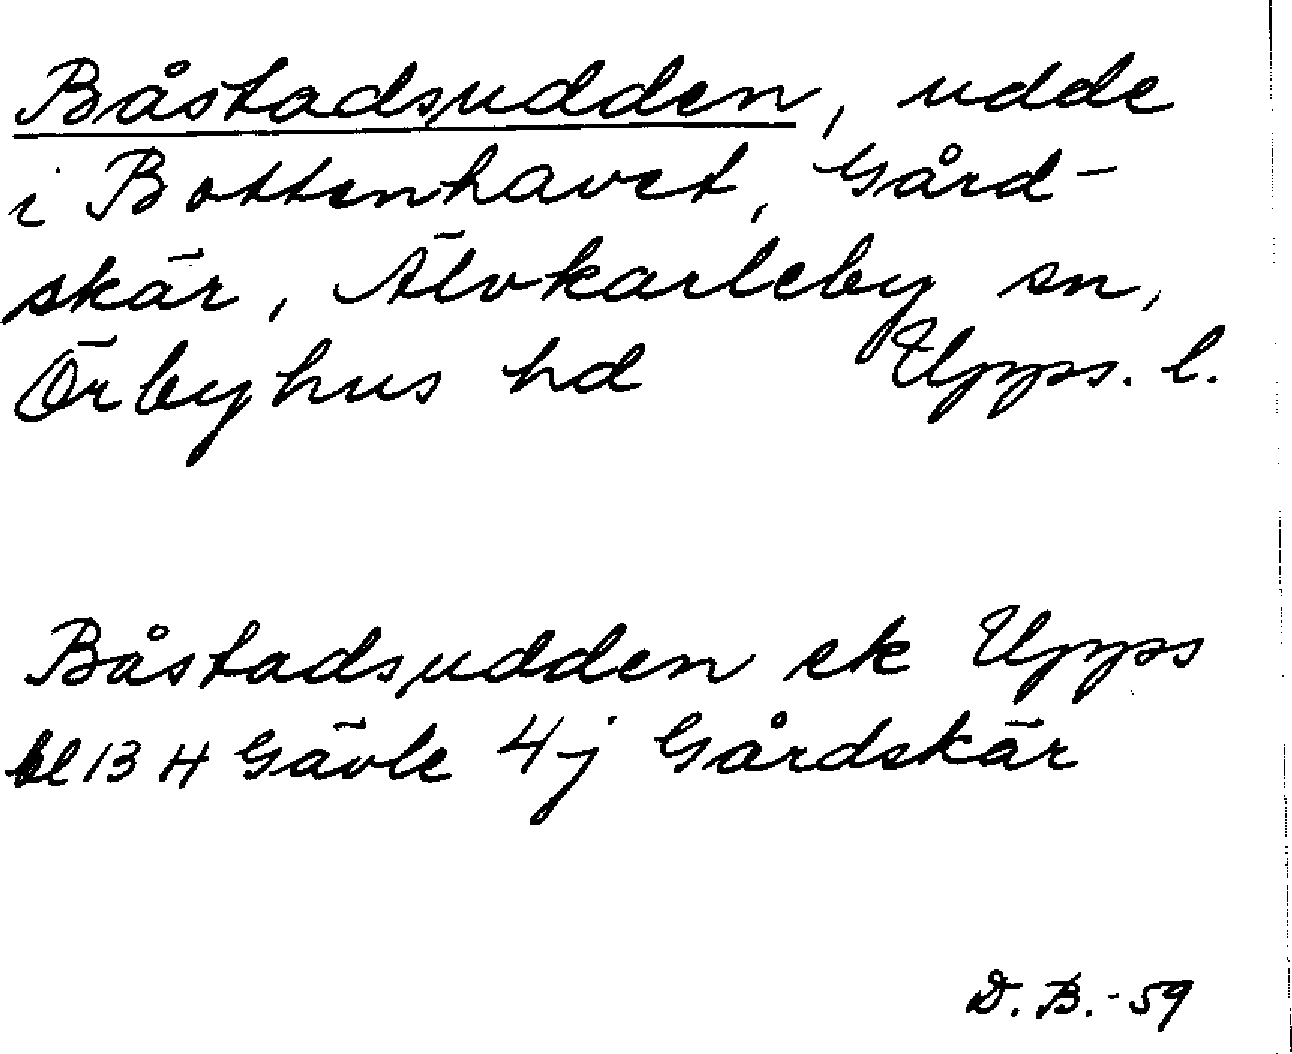 Båstadsudden, udde
i Bottenhavet, Gård-
skär, Älvkarleby sn,
Örbyhus hd Upps. l.
Båstadsudden ek Upps
bl 13 H Gävle 4j Gårdskär
D. B. -59